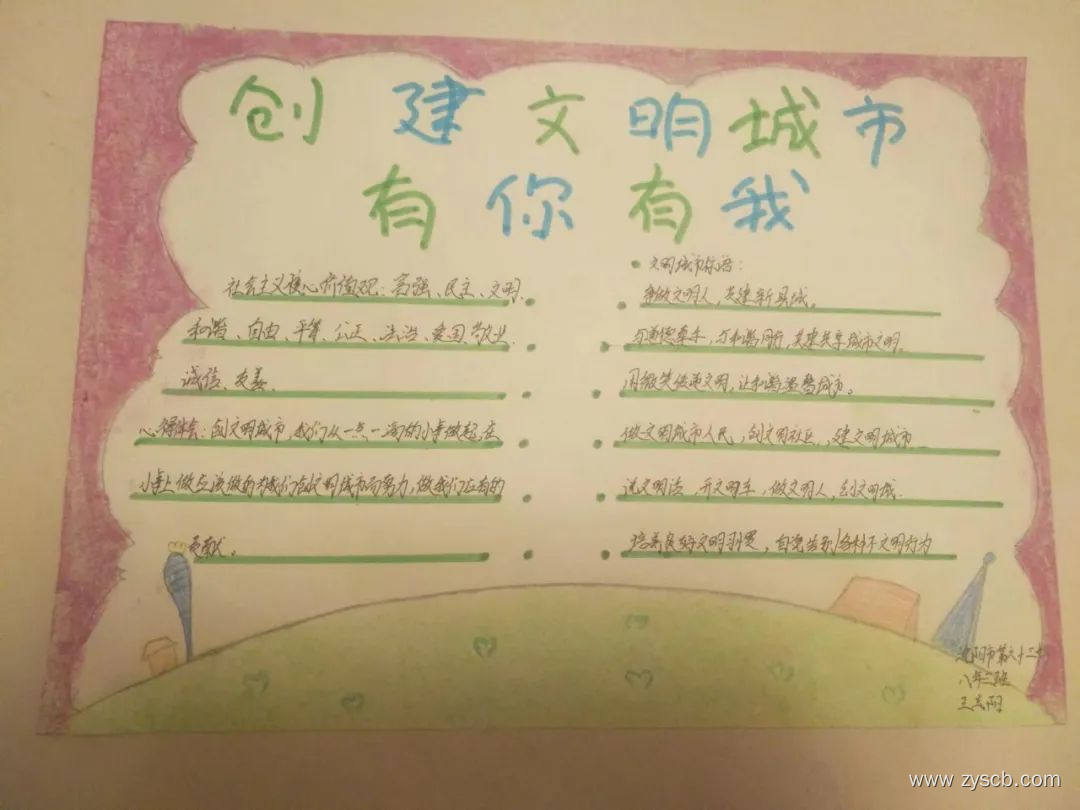 创建文明城市
有你有我
社会主义核心价值观：富强、民主、文明、
和谐、自由、平等、公正、法治、爱国、敬业、
诚信、友善。
心得体会：创文明城市，我们从一点一滴的小事做起，在
小事上做应该做的为我们创文明城市而努力，做我们应有的
贡献。
文明城市标语：
争做文明人，共建新县城。
与道德牵手，与和谐同行，共建共享城市文明。
用微笑传递文明，让和谐温馨城市。
做文明城市人民，创文明社区，建文明城市
说文明话，开文明车，做文明人，创文明城.
培养良好文明习惯，自觉告别各种不文明行为
沈阳市第六十二中
八年二班
王
www.zyscb.com